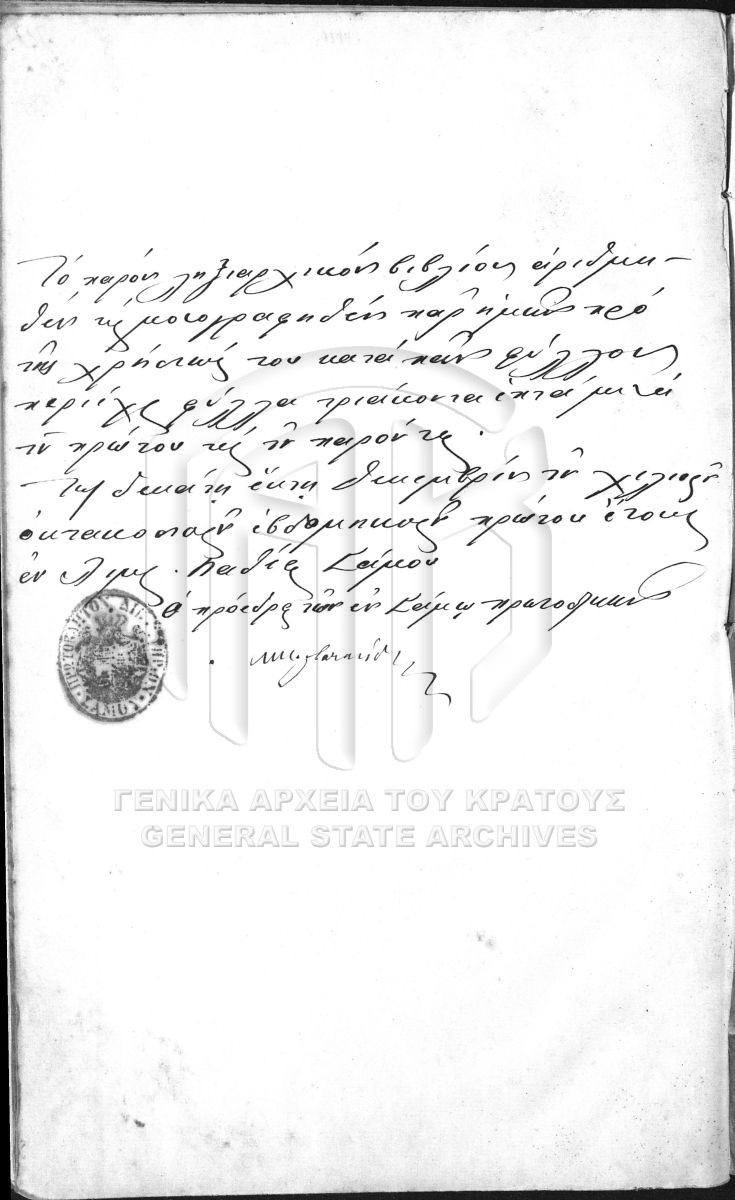 Τό παρόν ληξιαρχικόν βιβλίον ἀριθμη-
θέν καὶ μονογραφηθέν παρ' ἡμῶν πρό
τῆς χρήσεως του κατά πᾶν φύλλον
περιέχει φύλλα τριάκοντα ἑπτά μετά
τοῦ πρώτου καὶ τοῦ παρόντος.
Τῇ δεκάτῃ ἕκτῃ Δεκεμβρίου τοῦ χιλιοστοῦ
ὀκτακοσιοστοῦ ἑβδομηκοστοῦ πρώτου ἔτους
ἐν Λιμένι Βαθέος Σάμου
Ὁ πρόεδρος τῶν ἐν Σάμῳ πρωτοδικῶν
ΣΑΜΟΥ
ΓΕΝΙΚΑ ΑΡΧΕΙΑ ΤΟΥ ΚΡΑΤΟΥΣ
GENERAL STATE ARCHIVES